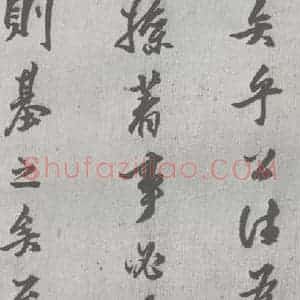 矣乎公法吾
操著事必
則基之矣
Shufaziliao.COM